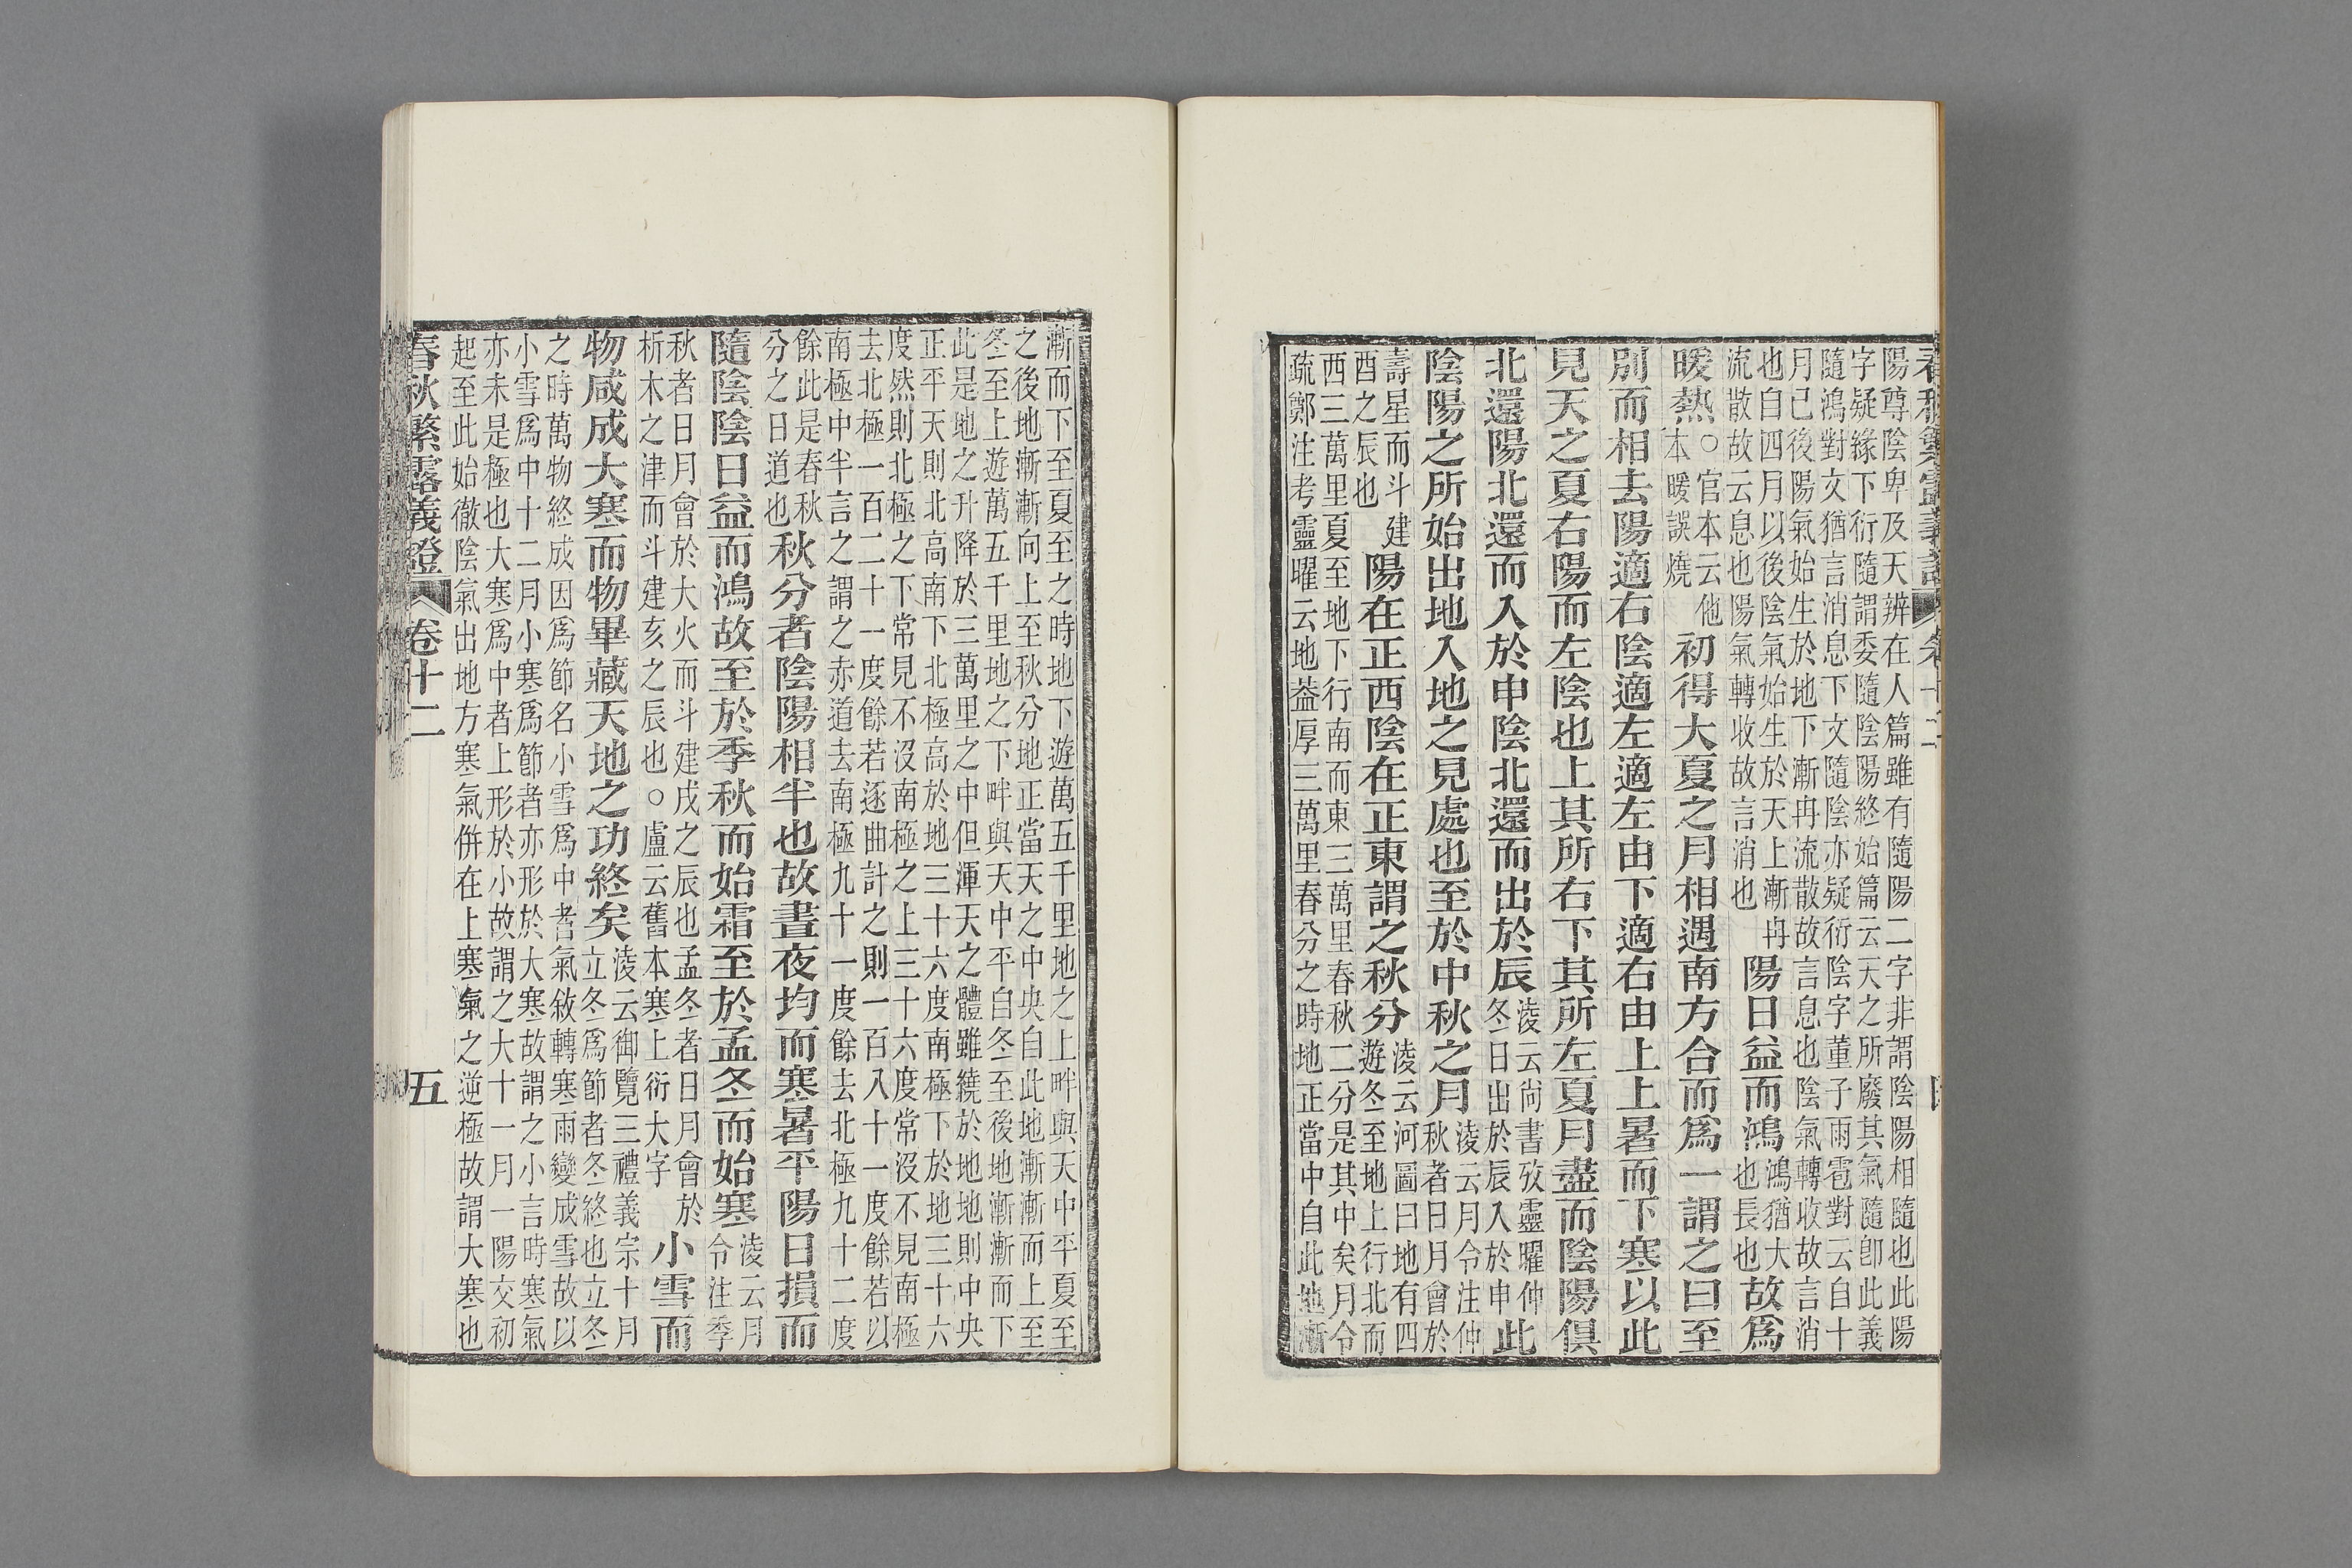 陽尊陰卑及天辨在人篇雖有隨陽二字非謂陰陽相隨也此陽
字疑緣下衍隨謂委隨陰陽終始篇云天之所廢其氣隨卽此義
隨鴻對文猶言消息下文隨陰亦疑衍陰字董子雨雹對云自十
月已後陽氣始生於地下漸冉流散故言息也陰氣轉收故言消
也自四月以後陰氣始生於天上漸冉
流散故云息也陽氣轉收故言消也
陽日益而鴻
鴻猶大
也長也
故爲
暖熱
○官本云他
本暖誤燒
初得大夏之月相遇南方合而爲一謂之曰至
別而相去陽適右陰適左適左由下適右由上上暑而下寒以此
見天之夏右陽而左陰也上其所右下其所左夏月盡而陰陽俱
北還陽北還而入於申陰北還而出於辰
淩云尙書攷靈曜仲
冬日出於辰入於申
此
陰陽之所始出地入地之見處也至於中秋之月
淩云月令注仲
秋者日月會於
壽星而斗建
酉之辰也
陽在正西陰在正東謂之秋分
淩云河圖曰地有四
遊冬至地上行北而
西三萬里夏至地下行南而東三萬里春秋二分是其中矣月令
疏鄭注考靈曜云地葢厚三萬里春分之時地正當中自此地漸
漸而下至夏至之時地下遊萬五千里地之上畔與天中平夏至
之後地漸漸向上至秋分地正當天之中央自此地漸漸而上至
冬至上遊萬五千里地之下畔與天中平自冬至後地漸漸而下
此是地之升降於三萬里之中但渾天之體雖繞於地地則中央
正平天則北高南下北極高於地三十六度南極下於地三十六
度然則北極之下常見不沒南極之上三十六度常沒不見南極
去北極一百二十一度餘若逐曲計之則一百八十一度餘若以
南極中半言之謂之赤道去南極九十一度餘去北極九十二度
餘此是春秋
分之日道也
秋分者陰陽相半也故晝夜均而寒暑平陽日損而
隨陰陰日益而鴻故至於季秋而始霜至於孟冬而始寒
淩云月
令注季
秋者日月會於大火而斗建戌之辰也孟冬者日月會於
析木之津而斗建亥之辰也○盧云舊本寒上衍大字
小雪而
物咸成大寒而物畢藏天地之功終矣
淩云御覽三禮義宗十月
立冬爲節者冬終也立冬
之時萬物終成因爲節名小雪爲中者氣敘轉寒雨變成雪故以
小雪爲中十二月小寒爲節者亦形於大寒故謂之小言時寒氣
亦未是極也大寒爲中者上形於小故謂之大十一月一陽交初
起至此始徹陰氣出地方寒氣併在上寒氣之逆極故謂大寒也
春秋繁露義證 卷十二 五